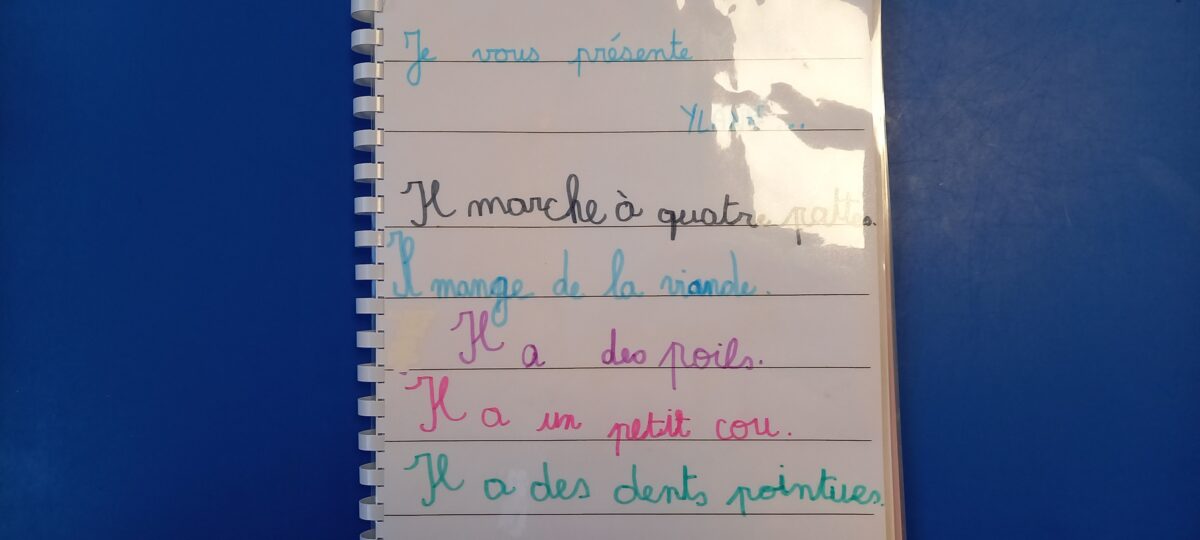 Je vous présente
Il marche à quatre pattes.
Il mange de la viande.
Il a des poils.
Il a un petit cou.
Il a des dents pointues.